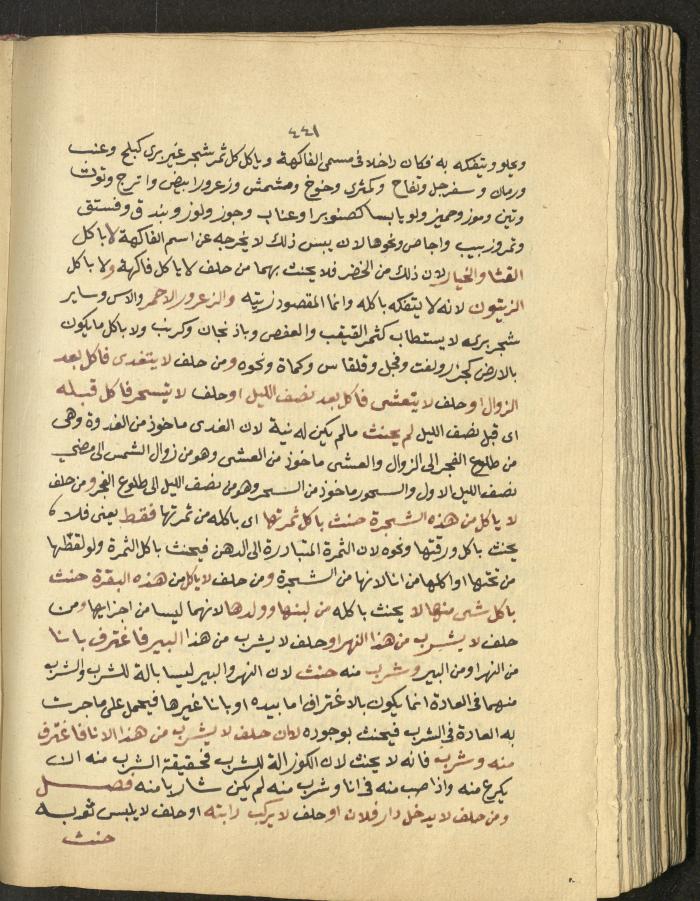 ٤٤١
ويحلو ويتفكه به فكان داخلا في مسمى الفاكهة وياكل كل ثمر شجر غير بري كبلح وعنب
ورمان وسفرجل وتفاح وكمثرى وخوخ ومشمش وزعرور ابيض واترج وتوت
وتين وموز وجميز ولو يابسا كصنوبر وعناب وجوز ولوز وبندق وفستق
وتمر وزبيب واجاص ونحوها لان يبس ذلك لا يخرجه عن اسم الفاكهة لا باكل
القثا والخيار لان ذلك من الخضر فلا يحنث بهما من حلف لا ياكل فاكهة ولا باكل
الزيتون لانه لا يتفكه باكله وانما المقصود زيته والزعرور الاحمر والاس وساير
شجر بري لا يستطاب كثمر القيقب والعفص وباذنجان وكرنب ولا باكل ما يكون
بالارض كجزر ولفت وفجل وقلقاس وكماة ونحوه ومن حلف لا يتغدى فاكل بعد
الزوال او حلف لا يتعشى فاكل بعد نصف الليل او حلف لا يتسحر فاكل قبله
اى قبل نصف الليل لم يحنث مالم يكن له نية لان الغدى ماخوذ من الغدوة وهى
من طلوع الفجر الى الزوال والعشى ماخوذ من العشى وهو من زوال الشمس الى مضي
نصف الليل الاول والسحور ماخوذ من السحر وهو من نصف الليل الى طلوع الفجر ومن حلف
لا ياكل من هذه الشجرة حنث باكل ثمرتها اى باكله من ثمرتها فقط يعنى فلا
يحنث باكل ورقتها ونحوه لان الثمرة المتبادرة الى الذهن فيحنث باكل الثمرة ولو لقطها
من تحتها او اكلها من انا لانها من الشجرة ومن حلف لا ياكل من هذه البقرة حنث
باكل شى منها لا يحنث باكله من لبنها وولدها لانهما ليسا من اجزايها ومن
حلف لا يشرب من هذا النهر او حلف لا يشرب من هذا البير فاغترف بانا
من النهر او من البير وشرب منه حنث لان النهر والبير ليسا بالة للشرب والشرب
منهما في العادة انما يكون بالاغتراف اما بيده او بانا غيرها فيحمل على ما جرت
به العادة في الشرب فيحنث بوجوده لا ان حلف لا يشرب من هذا الانا فاغترف
منه وشرب فانه لا يحنث لان الكوز الة للشرب فحقيقة الشرب منه ان
يكرع منه واذا صب منه في انا وشرب منه لم يكن شاربا منه فصل
ومن حلف لا يدخل دار فلان او حلف لا يركب دابته او حلف لا يلبس ثوبه
حنث